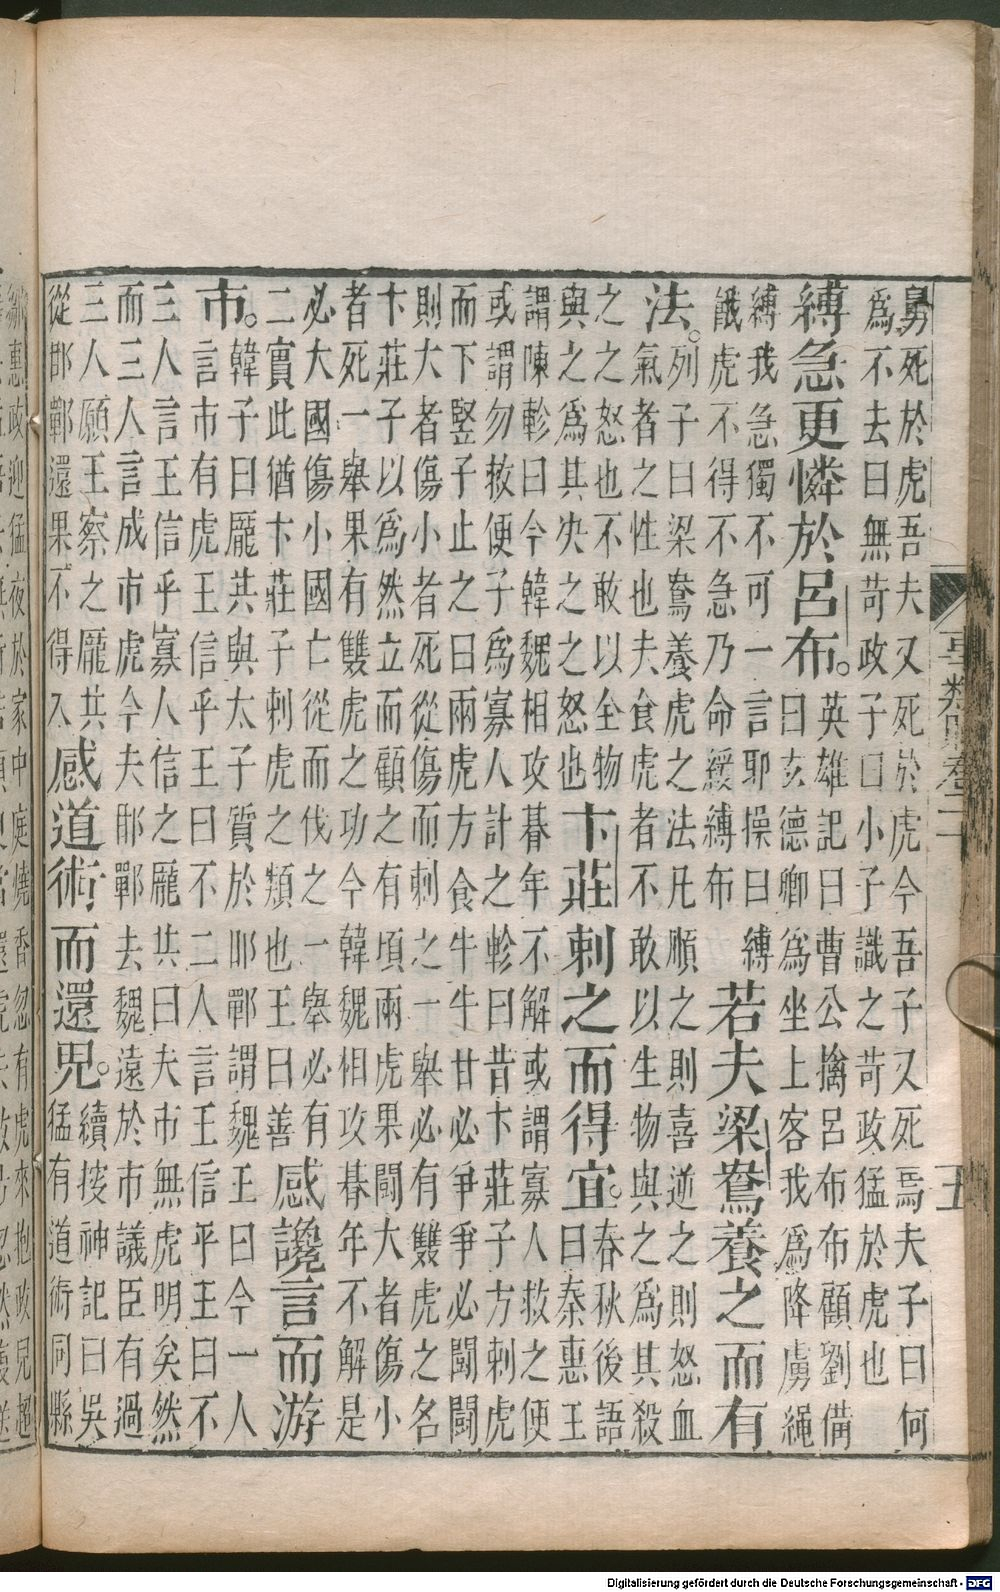 事類賦卷二十
五
舅死於虎吾夫又死於虎今吾子又死焉夫子曰何
爲不去曰無苛政子曰小子識之苛政猛於虎也
縛急更憐於呂布。
英雄記曰曹公擒呂布布顧劉備
曰玄德卿爲坐上客我爲降虜繩
縛我急獨不可一言耶操曰縛
餓虎不得不急乃命緩縛布
若夫梁鴦養之而有
法。
列子曰梁鴦養虎之法凡順之則喜逆之則怒血
氣者之性也夫食虎者不敢以生物與之爲其殺
之之怒也不敢以全物
與之爲其決之之怒也
卞莊刺之而得宜。
春秋後語
曰秦惠王
謂陳軫曰今韓魏相攻朞年不解或謂寡人救之便
或謂勿救便子爲寡人計之軫曰昔卞莊子方刺虎
而下豎子止之曰兩虎方食牛牛甘必爭爭必鬭鬭
則大者傷小者死從傷而刺之一舉必有雙虎之名
卞莊子以爲然立而顧之有頃兩虎果鬭大者傷小
者死一舉果有雙虎之功今韓魏相攻朞年不解是
必大國傷小國亡從而伐之一舉必有
二實此猶卞莊子刺虎之類也王曰善
感讒言而游
市。
韓子曰龎共與太子質於邯鄲謂魏王曰今一人
言市有虎王信乎王曰不二人言王信乎王曰不
三人言王信乎寡人信之龎共曰夫市無虎明矣然
而三人言成市虎今夫邯鄲去魏遠於市議臣有過
三人願王察之龎共
從邯鄲還果不得入
感道術而還兕。
續搜神記曰吳
猛有道術同縣
鄒惠政迎猛夜於家中庭燒香忽有虎來抱政兒超
Digitalisierung gefördert durch die Deutsche Forschungsgemeinschaft - DFG